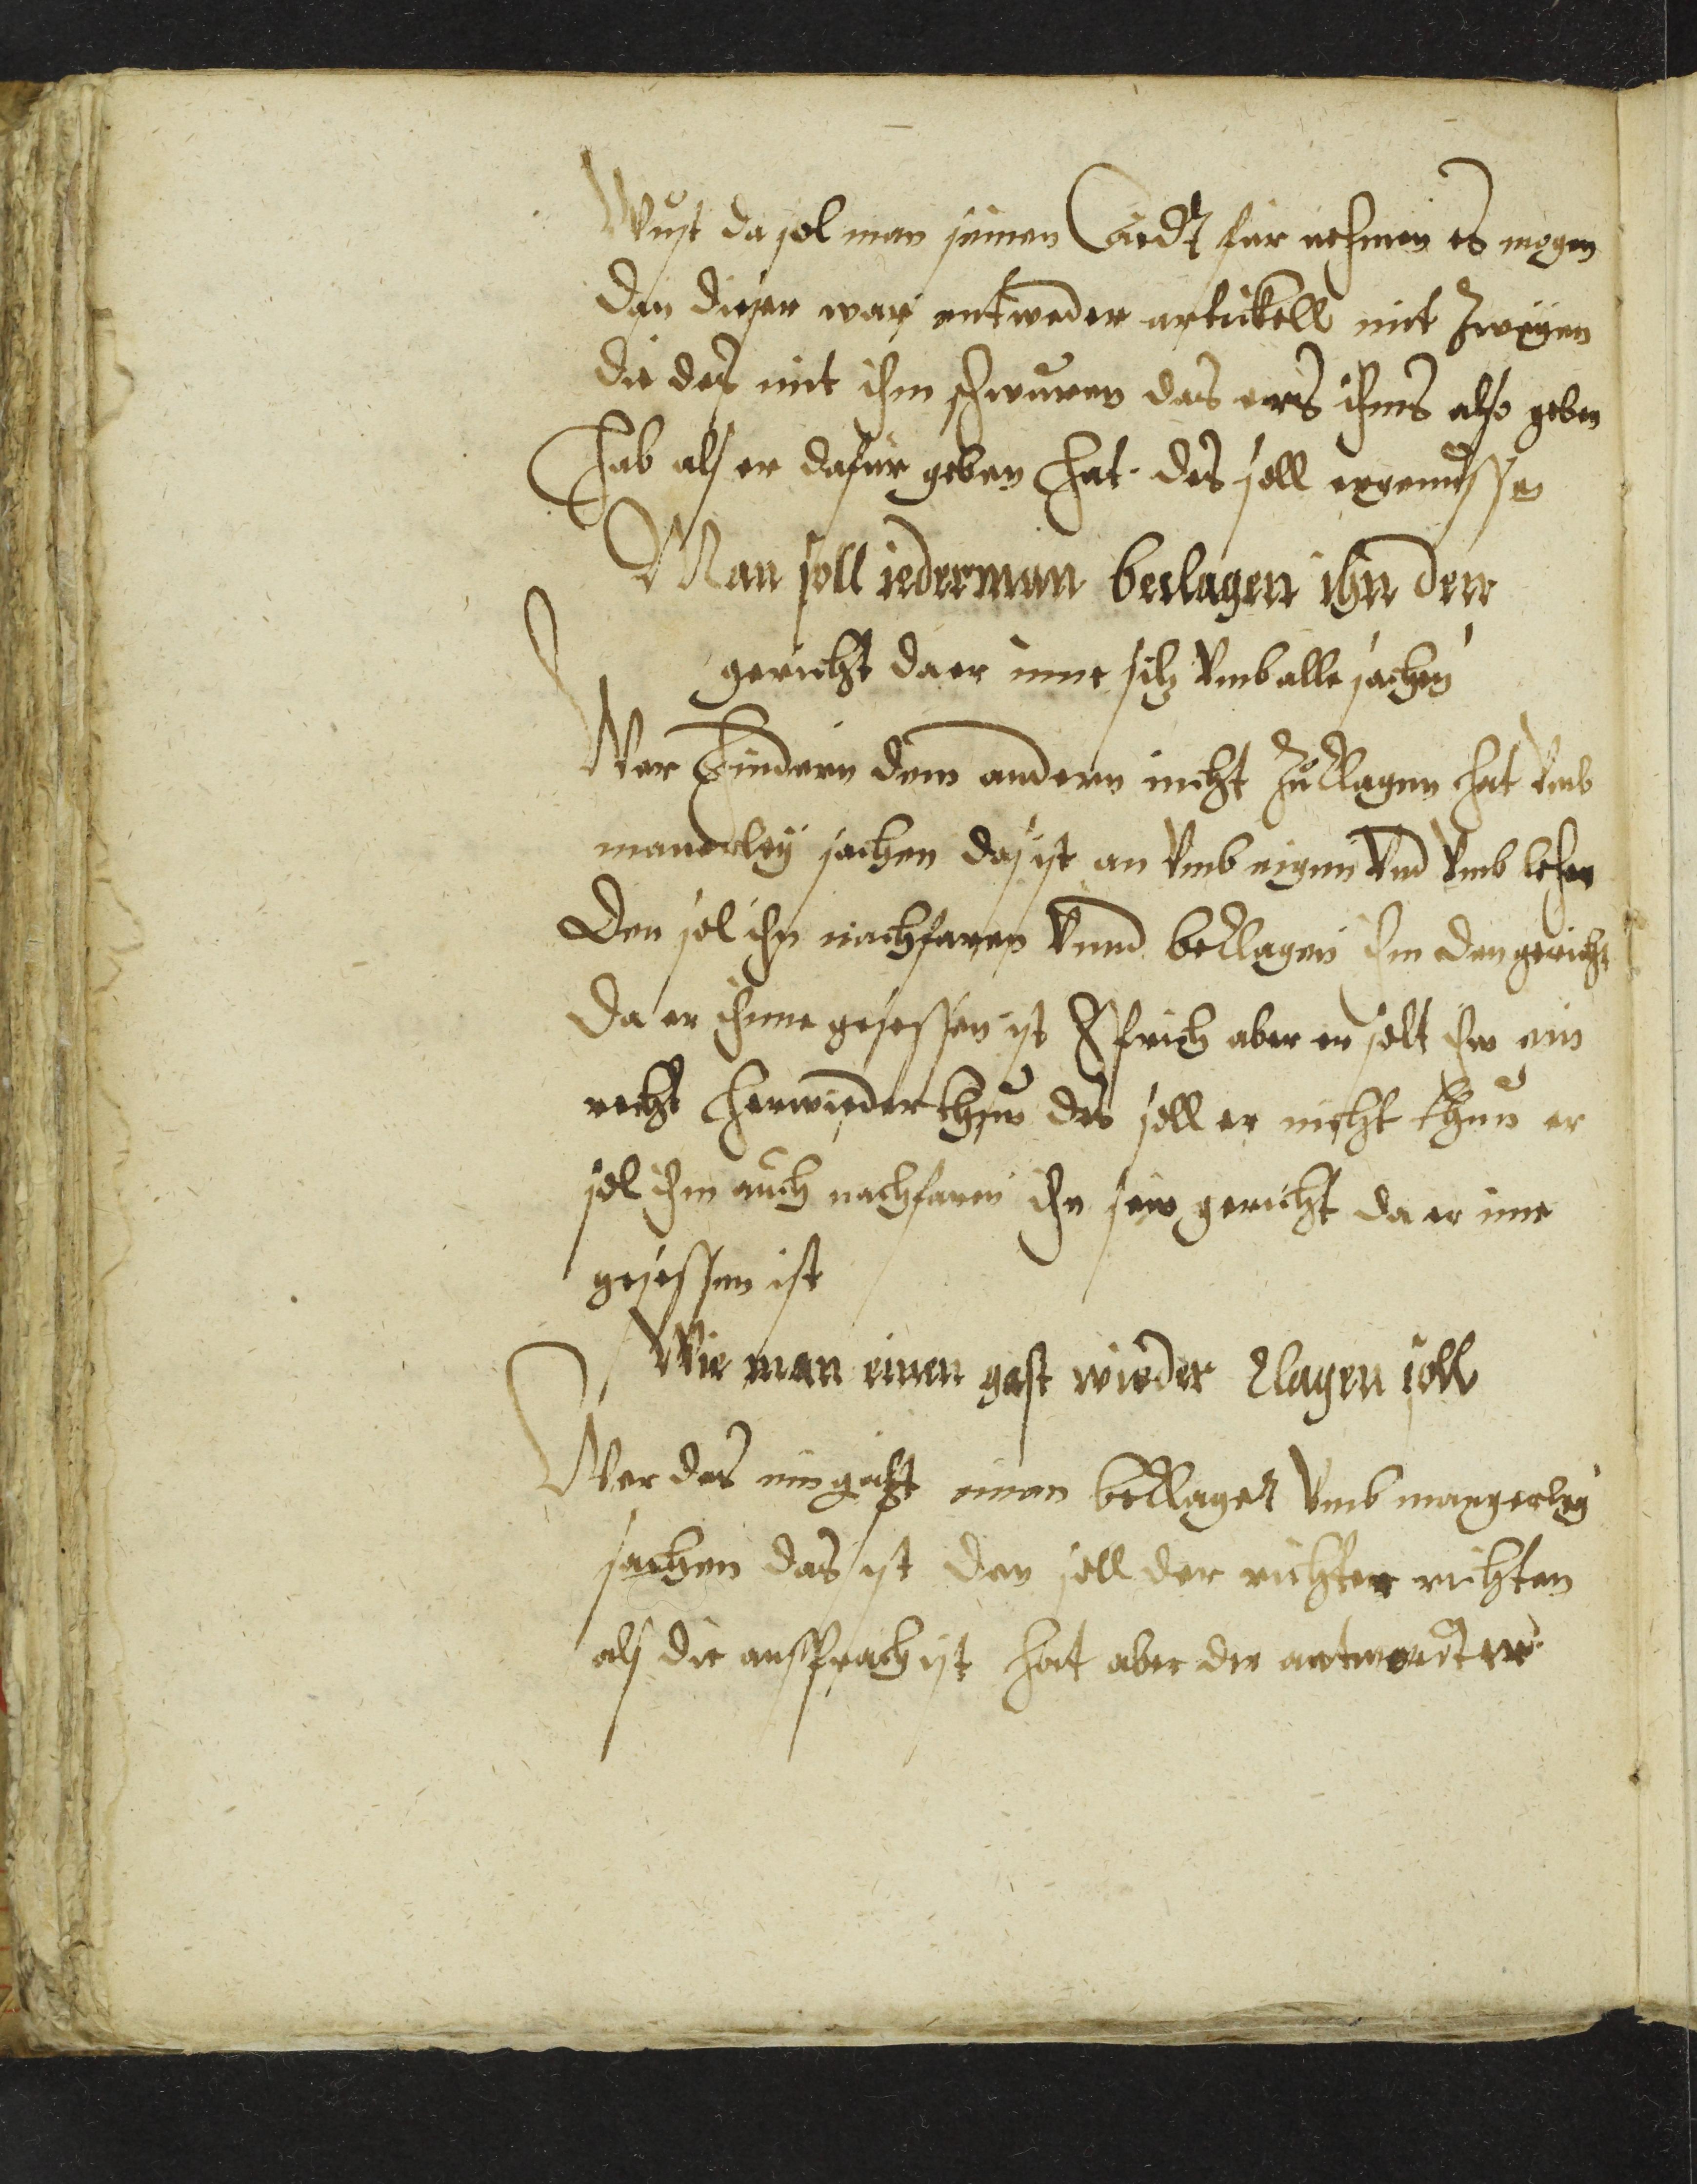 Wust da sol man seinen Eiedt fur nehmen es mogen
dan dieser war entweder artickell mit Zweyen
die des mit ihm schwuren das ers ihms also geben
hab als er dafur geben hat. des soll er genissen
Man soll iederman beclagen ihn dem
gericht da er inne sitz umb alle sachen
Wer hindern dem andern nicht zu clagen hat umb
manerley sachen das ist an umb eigen und umb lehen
Den sol ihn nachfaren unnd beclagen ihn den gericht
da er ihnne gesessen ist Sprich aber er solt ihm ein
recht herwieder thun das soll er nicht thun er
sol ihm auch nachfaren ihn sein gericht da er inne
gesessen ist
Wie man einen gast wieder clagen soll
Wer das ein gast einen beclaget umb mangerley
sachen das ist den soll der richter richten
als die ansprach ist hat aber der antwordter